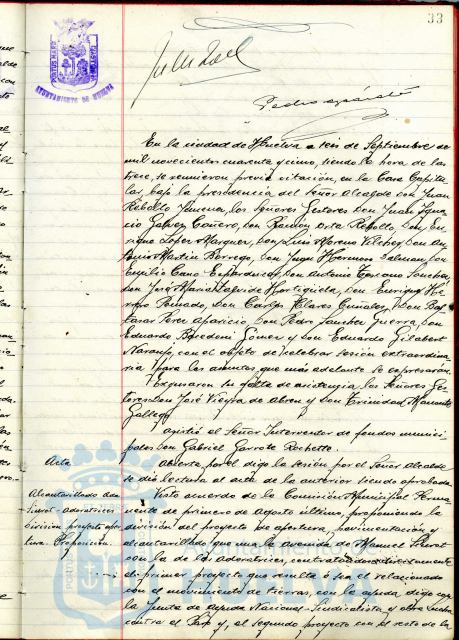 33
AYUNTAMIENTO DE HUELVA
En la ciudad de Huelva a seis de Septiembre de
mil novecientos cuarenta y cinco, siendo la hora de las
trece, se reunieron previa citación, en la Casa Capitu-
lar, bajo la presidencia del Señor Alcalde don Juan
Rebollo Jimenez, los Señores Gestores Don Juan Igna-
cio Galvez Cañero, Don Ramón Orta Rebollo, Don En-
rique López Marquez, Don Luis Moreno Vilches, Don An-
tonio Martín Borrego, Don Hermoso
Emilio Cano Don Antonio
Don José María Don Enrique
Don Carlos Don Bal-
tasar Perez Aparicio, Don Pedro Sanchez Guerra, Don
Eduardo Gomez y Don Eduardo Gilabert
Naranjo, con el objeto de celebrar sesión extraordina-
ria para los asuntos que más adelante se expresarán.
Excusaron su falta de asistencia, los Señores Ges-
tores Don José Vieyra de Abreu y Don Trinidad
Gallego.
Asistió el Señor Interventor de fondos munici-
pales Don Gabriel Garrote
Acta
Abierta la sesión por el Señor Alcalde
se dio lectura al acta de la anterior siendo aprobada.
Alcantarillado
Siurot-adoratrices
división proyecto aper-
tura. Proposición.
Visto acuerdo de la Comisión Municipal Perma-
nente de primero de Agosto último, proponiendo la
división del proyecto de apertura, pavimentación y
alcantarillado que una la avenida de Manuel Siurot
con la de las adoratrices, directamente
el primer proyecto que resulta o sea el relacionado
con el movimiento de tierras, con la ayuda
la Junta de Nacional-Sindicalista y obra Lucha
contra el Paro y, el segundo proyecto con el resto de la